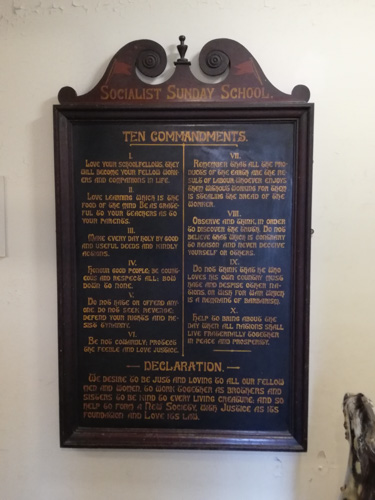 SOCIALIST SUNDAY SCHOOL.
TEN COMMANDMENTS.
I.
LOVE YOUR SCHOOLFELLOWS, THEY
WILL BECOME YOUR FELLOW WORK-
ERS AND COMPANIONS IN LIFE.
II.
LOVE LEARNING WHICH IS THE
FOOD OF THE MIND BE AS GRATE-
FUL TO YOUR TEACHERS AS TO
YOUR PARENTS.
III.
MAKE EVERY DAY HOLY BY GOOD
AND USEFUL DEEDS AND KINDLY
ACTIONS.
IV.
HONOUR GOOD PEOPLE; BE COURT-
EOUS AND RESPECT ALL; BOW
DOWN TO NONE.
V.
DO NOT HATE OR OFFEND ANY-
ONE. DO NOT SEEK REVENGE;
DEFEND YOUR RIGHTS AND RE-
SIST TYRANNY.
VI.
BE NOT COWARDLY; PROTECT
THE FEEBLE AND LOVE JUSTICE.
VII.
REMEMBER THAT ALL THE PRO-
DUCTS OF THE EARTH ARE THE RE-
SULT OF LABOUR. WHOEVER ENJOYS
THEM WITHOUT WORKING FOR THEM
IS STEALING THE BREAD OF THE
WORKER.
VIII.
OBSERVE AND THINK, IN ORDER
TO DISCOVER THE TRUTH. DO NOT
BELIEVE WHAT IS CONTRARY
TO REASON AND NEVER DECEIVE
YOURSELF OR OTHERS.
IX.
DO NOT THINK THAT HE WHO
LOVES HIS OWN COUNTRY MUST
HATE AND DESPISE OTHER NAT-
IONS, OR WISH FOR WAR WHICH
IS A REMNANT OF BARBARISM.
X.
HELP TO BRING ABOUT THE
DAY WHEN ALL NATIONS SHALL
LIVE FRATERNALLY TOGETHER
IN PEACE AND PROSPERITY.
DECLARATION.
WE DESIRE TO BE JUST AND LOVING TO ALL OUR FELLOW
MEN AND WOMEN, TO WORK TOGETHER AS BROTHERS AND
SISTERS TO BE KIND TO EVERY LIVING CREATURE; AND SO
HELP TO FORM A NEW SOCIETY, WITH JUSTICE AS ITS
FOUNDATION AND LOVE ITS LAW.